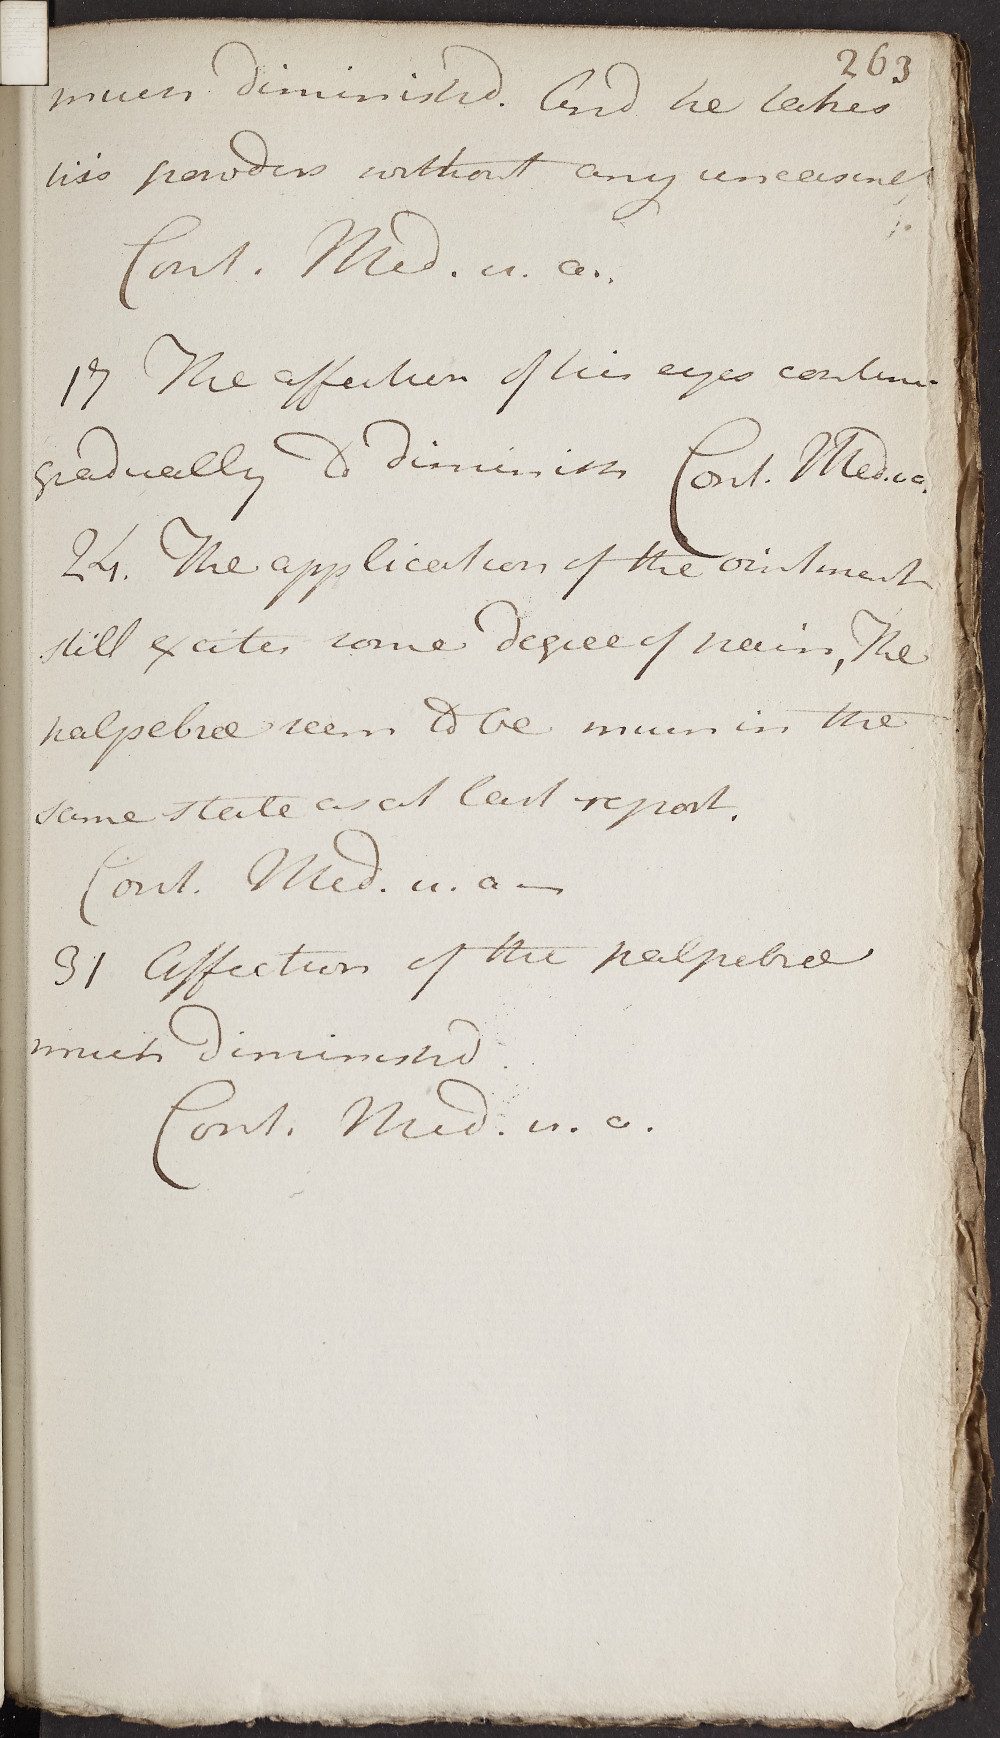 263
much diminishd. And he takes
his powders without any uneasiness
Cont. Med. u. a.
17 The affection of his eyes continu
gradually to diminish Cont. Med. u a.
24. The application of the ointment
still excites some degree of pain, The
palpebræ seem to be much in the
same state as at last report.
Cont. Med. u. a
31 Affection of the palpebræ
much diminishd
Cont. Med. u. a.